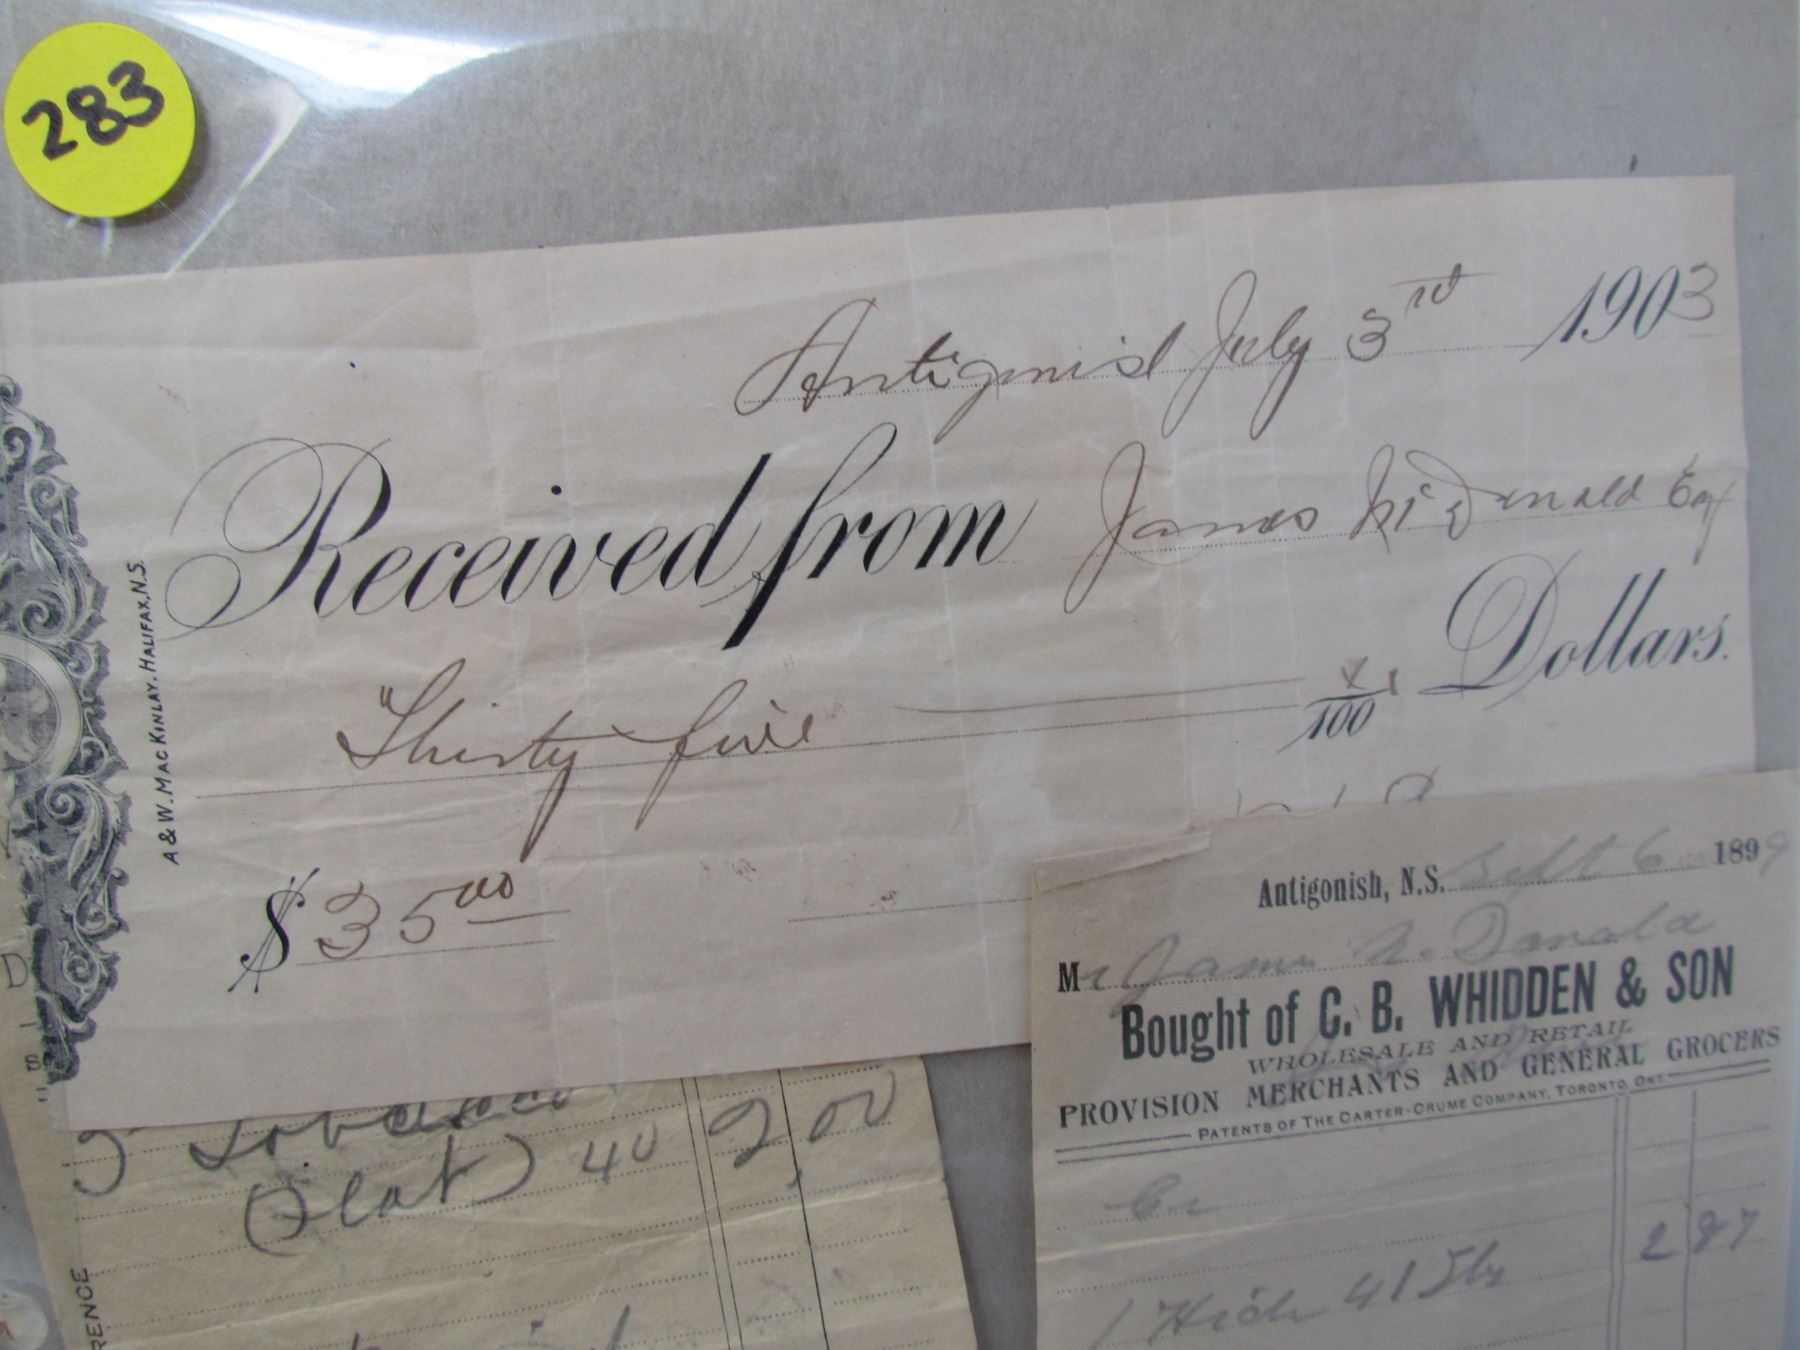 283
Antigonish July 3rd 1903
Received from James McDonald Esq
Thirty five xx/100 Dollars.
$35.00
A & W. MACKINLAY. HALIFAX, N.S.
Antigonish, N.S. Sept 6 1899
Mr James McDonald
Bought of C. B. WHIDDEN & SON
WHOLESALE AND RETAIL
PROVISION MERCHANTS AND GENERAL GROCERS
PATENTS OF THE CARTER-CRUME COMPANY, TORONTO, ONT.
Cr
1 Hide 41 2 87
5 Tobacco
(Flat) 40 2,00
RENCE